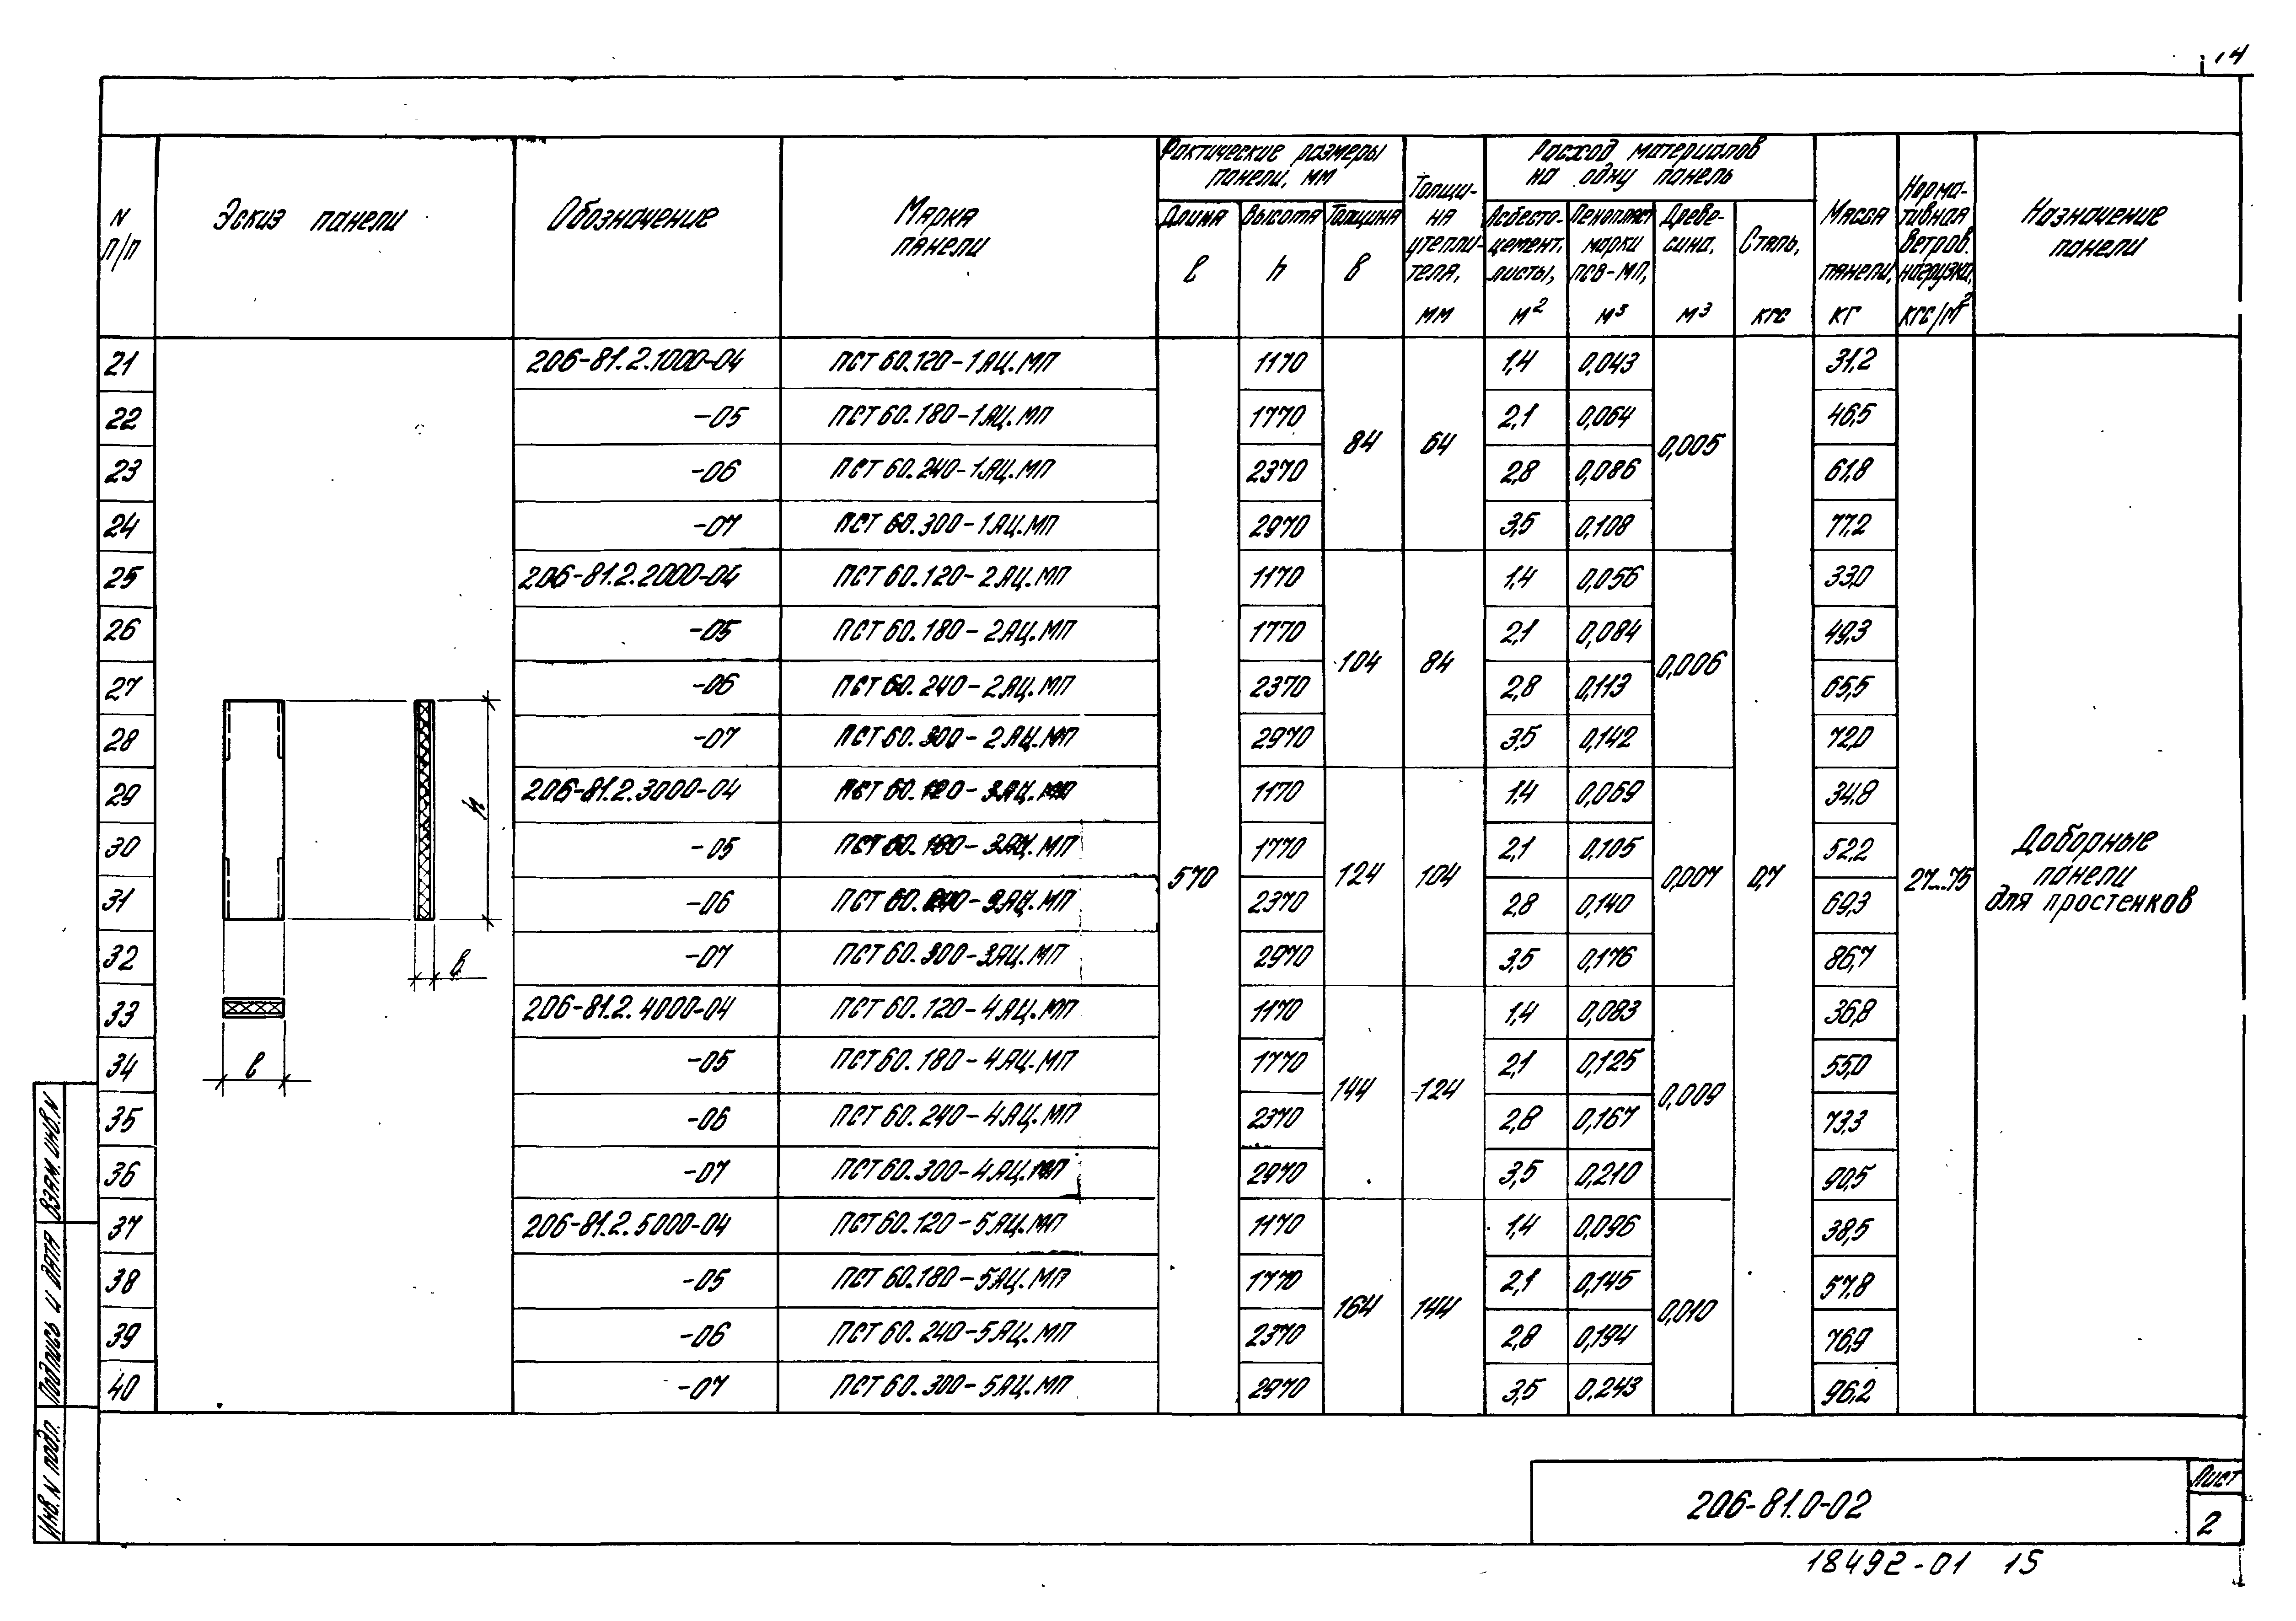 14
N п/п
Эскиз панели
Обозначение
Марка панели
Фактические размеры панели, мм
Длина l
Высота h
Толщина в
Толщи-на утепли-теля, мм
Расход материалов на одну панель
Асбесто-цемент. листы, м²
Пенопласт марки ПСВ-МП, м³
Древе-сина, м³
Сталь, кгс
Масса панели, кг
Норма-тивная ветров. нагрузка, кгс/м²
Назначение панели
21 206-81.2.1000-04 ПСТ 60.120-1.АЦ.МП 1170 1,4 0,043 31,2
22 -05 ПСТ 60.180-1.АЦ.МП 1770 2,1 0,064 46,5
84 64 0,005
23 -06 ПСТ 60.240-1.АЦ.МП 2370 2,8 0,086 61,8
24 -07 ПСТ 60.300-1.АЦ.МП 2970 3,5 0,108 77,2
25 206-81.2.2000-04 ПСТ 60.120-2.АЦ.МП 1170 1,4 0,056 33,0
26 -05 ПСТ 60.180-2.АЦ.МП 1770 2,1 0,084 49,3
104 84 0,006
27 -06 ПСТ 60.240-2.АЦ.МП 2370 2,8 0,113 65,5
28 -07 ПСТ 60.300-2.АЦ.МП 2970 3,5 0,142 72,0
29 206-81.2.3000-04 ПСТ 60.120-3.АЦ.МП 1170 1,4 0,069 34,8
30 -05 ПСТ 60.180-3.АЦ.МП 1770 2,1 0,105 52,2
570 124 104 0,007 0,7 27...75
Доборные
панели
для простенков
31 -06 ПСТ 60.240-3.АЦ.МП 2370 2,8 0,140 69,3
32 -07 ПСТ 60.300-3.АЦ.МП 2970 3,5 0,176 86,7
33 206-81.2.4000-04 ПСТ 60.120-4.АЦ.МП 1170 1,4 0,083 36,8
34 -05 ПСТ 60.180-4.АЦ.МП 1770 2,1 0,125 55,0
144 124 0,009
35 -06 ПСТ 60.240-4.АЦ.МП 2370 2,8 0,167 73,3
36 -07 ПСТ 60.300-4.АЦ.МП 2970 3,5 0,210 90,5
37 206-81.2.5000-04 ПСТ 60.120-5.АЦ.МП 1170 1,4 0,096 38,5
38 -05 ПСТ 60.180-5.АЦ.МП 1770 2,1 0,145 57,8
164 144 0,010
39 -06 ПСТ 60.240-5.АЦ.МП 2370 2,8 0,194 76,9
40 -07 ПСТ 60.300-5.АЦ.МП 2970 3,5 0,243 96,2
h
в
l
Взам. инв. N
Подпись и дата
Инв. N подл.
206-81.0-02
Лист
2
18492-01 15